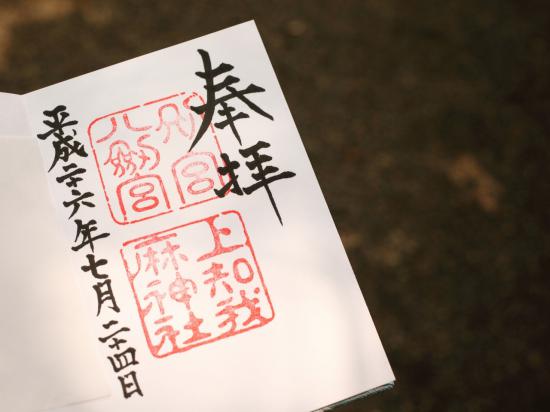 奉拝
別宮
八劔宮
上知我
麻神社
平成二十六年七月二十四日